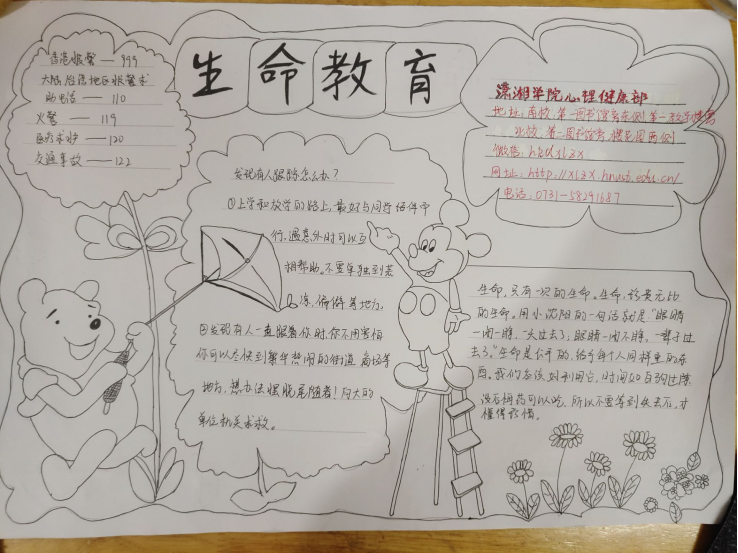 生命教育
香港报警 — 999
大陆居民地区报警求
助电话 — 110
火警 — 119
医疗求护 — 120
交通事故 — 122
潇湘学院心理健康部
地址:南校 第一图书馆旁东侧 第一教学楼旁
北校 第二图书馆旁 樱花园西侧
微信:hkdxlzx
网址:http://xlzx.hnust.edu.cn/
电话:0731-58291687
发现有人跟踪怎么办?
①上学和放学的路上,最好与同学结伴守
行,遇意外时可以互
相帮助。不要单独到荒
凉、偏僻某地方。
②发现有人一直跟着你时,你不用害怕
你可以尽快到繁华热闹的街道、商场等
地方,想办法摆脱尾随者!向大的
单位机关求救。
生命,只有一次的生命。生命,珍贵无比
的生命。用小沈阳的一句话就是"眼睛
一闭一睁,一天过去了,眼睛一闭不睁,一辈子过
去了。"生命是公平的,给予每个人同样重的东
西。我们应该好利用它。时间如白驹过隙
没有后悔药可以吃,所以不要等到失去后,才
懂得珍惜。